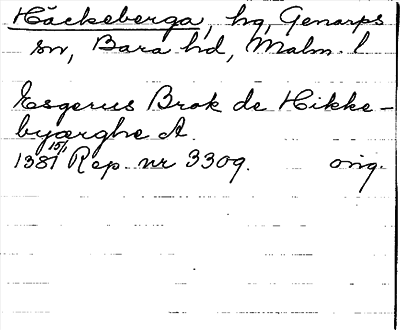 Häckeberga, hg, Genarps
sn, Bara hd, Malm. l
Esgerus Brok de Hikke-
byærghe A.
1381 15/1 Rep. nr 3309. orig.